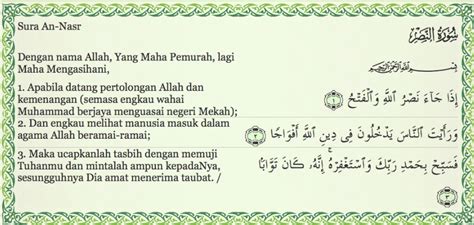 Sura An-Nasr
سُورَةُ النَّصْرِ
Dengan nama Allah, Yang Maha Pemurah, lagi
Maha Mengasihani,
بِسْمِ اللَّهِ الرَّحْمَٰنِ الرَّحِيمِ
1. Apabila datang pertolongan Allah dan
kemenangan (semasa engkau wahai
Muhammad berjaya menguasai negeri Mekah);
2. Dan engkau melihat manusia masuk dalam
agama Allah beramai-ramai;
3. Maka ucapkanlah tasbih dengan memuji
Tuhanmu dan mintalah ampun kepadaNya,
sesungguhnya Dia amat menerima taubat. /
إِذَا جَاءَ نَصْرُ اللَّهِ وَالْفَتْحُ ١
وَرَأَيْتَ النَّاسَ يَدْخُلُونَ فِي دِينِ اللَّهِ أَفْوَاجًا ٢
فَسَبِّحْ بِحَمْدِ رَبِّكَ وَاسْتَغْفِرْهُ ۚ إِنَّهُ كَانَ تَوَّابًا
٣